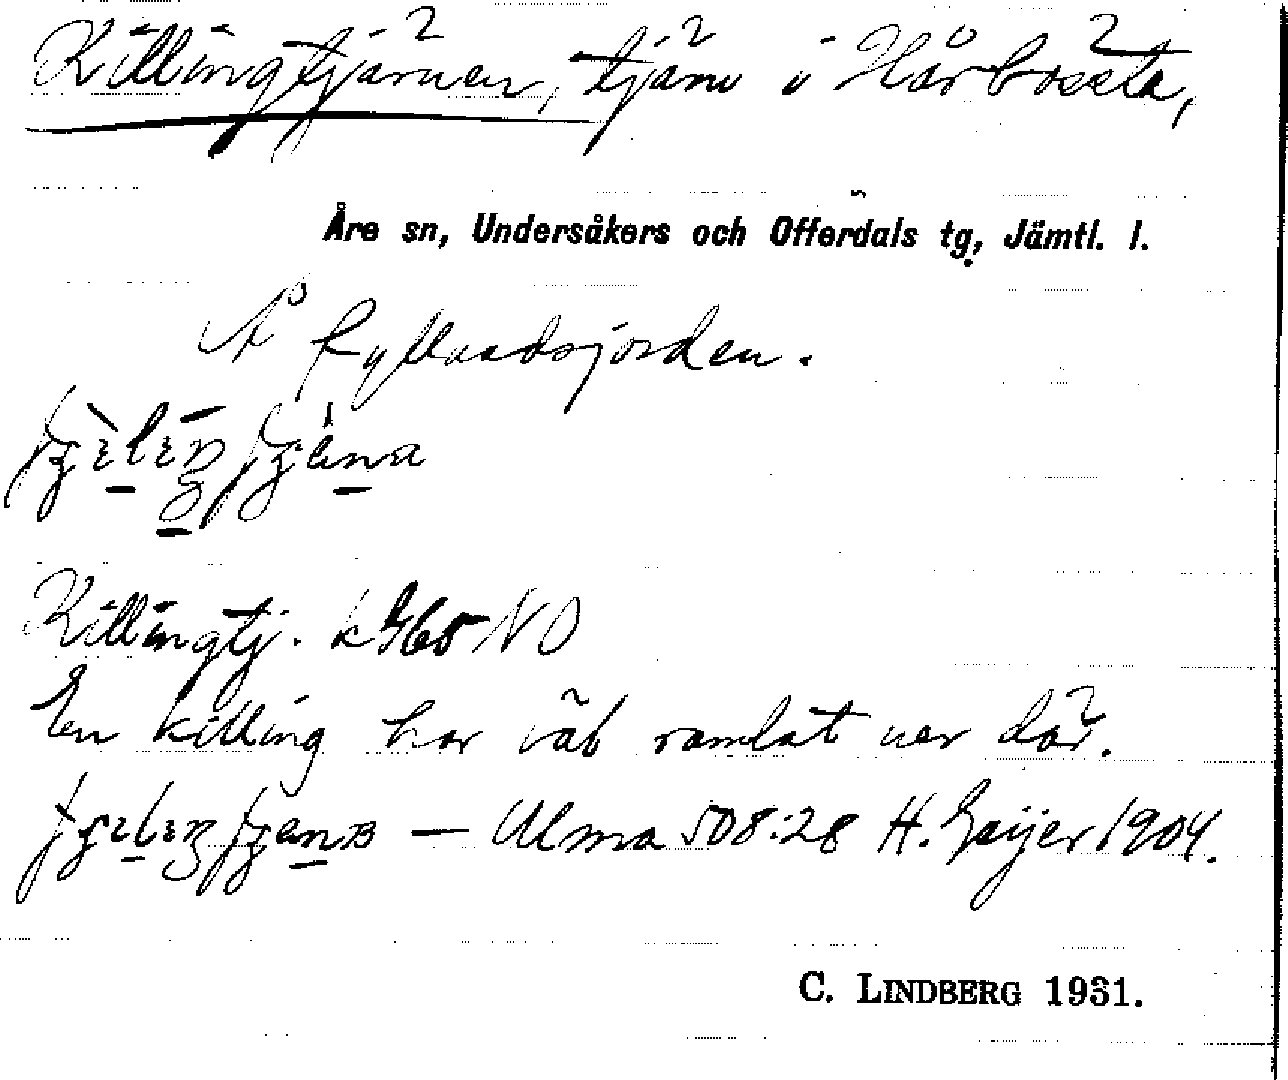 Killingtjärnen, tjärn i Hårbossta,
Åre sn, Undersåkers och Offerdals tg, Jämtl. l.
På Kyllandsjorden.
Killingtj. k G65 NO
En killing har väl ramlat ner där.
— Ulma 508:28 H. Geijer 1904.
C. LINDBERG 1931.